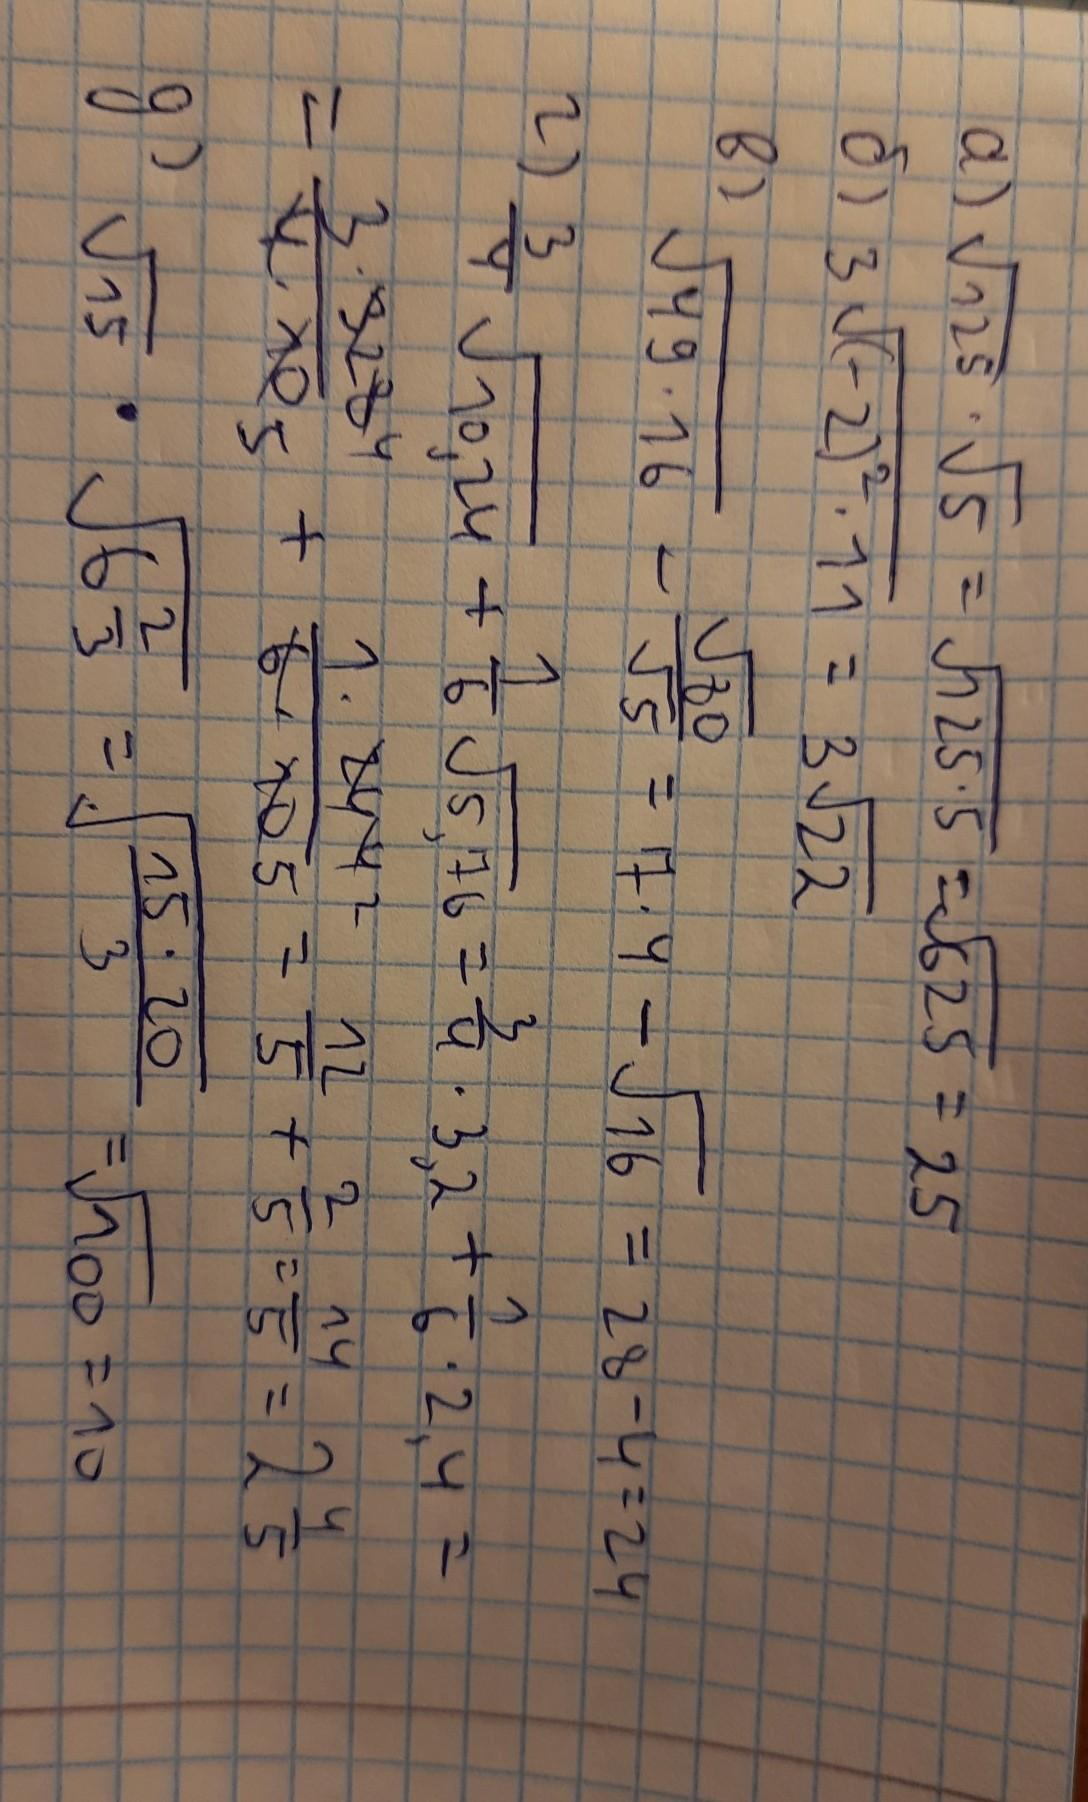 а) √125 · √5 = √125·5 = √625 = 25
б) 3√(-2)² · 11 = 3√22
в) √49·16 - √80/√5 = 7·4 - √16 = 28-4=24
г) 3/4 √10,24 + 1/6 √5,76 = 3/4 · 3,2 + 1/6 · 2,4 =
= 3·32 8 4/4·10 5 + 1·24 4 2/6·10 5 = 12/5 + 2/5 = 14/5 = 2 4/5
д) √15 · √6 2/3 = √15·20/3 = √100 = 10